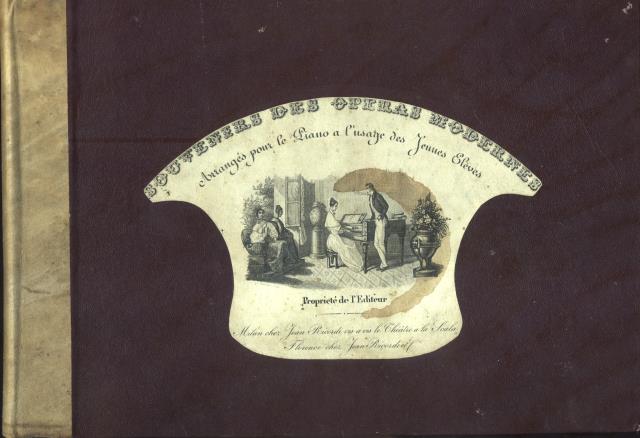 SOUVENIRS DES OPERAS MODERNES
Arrangés pour le Piano a l'usage des Jeunes Elèves
Propriété de l'Editeur
Milan chez Jean Ricordi vis a vis le Théâtre a la Scala
Florence chez Jean Ricordi